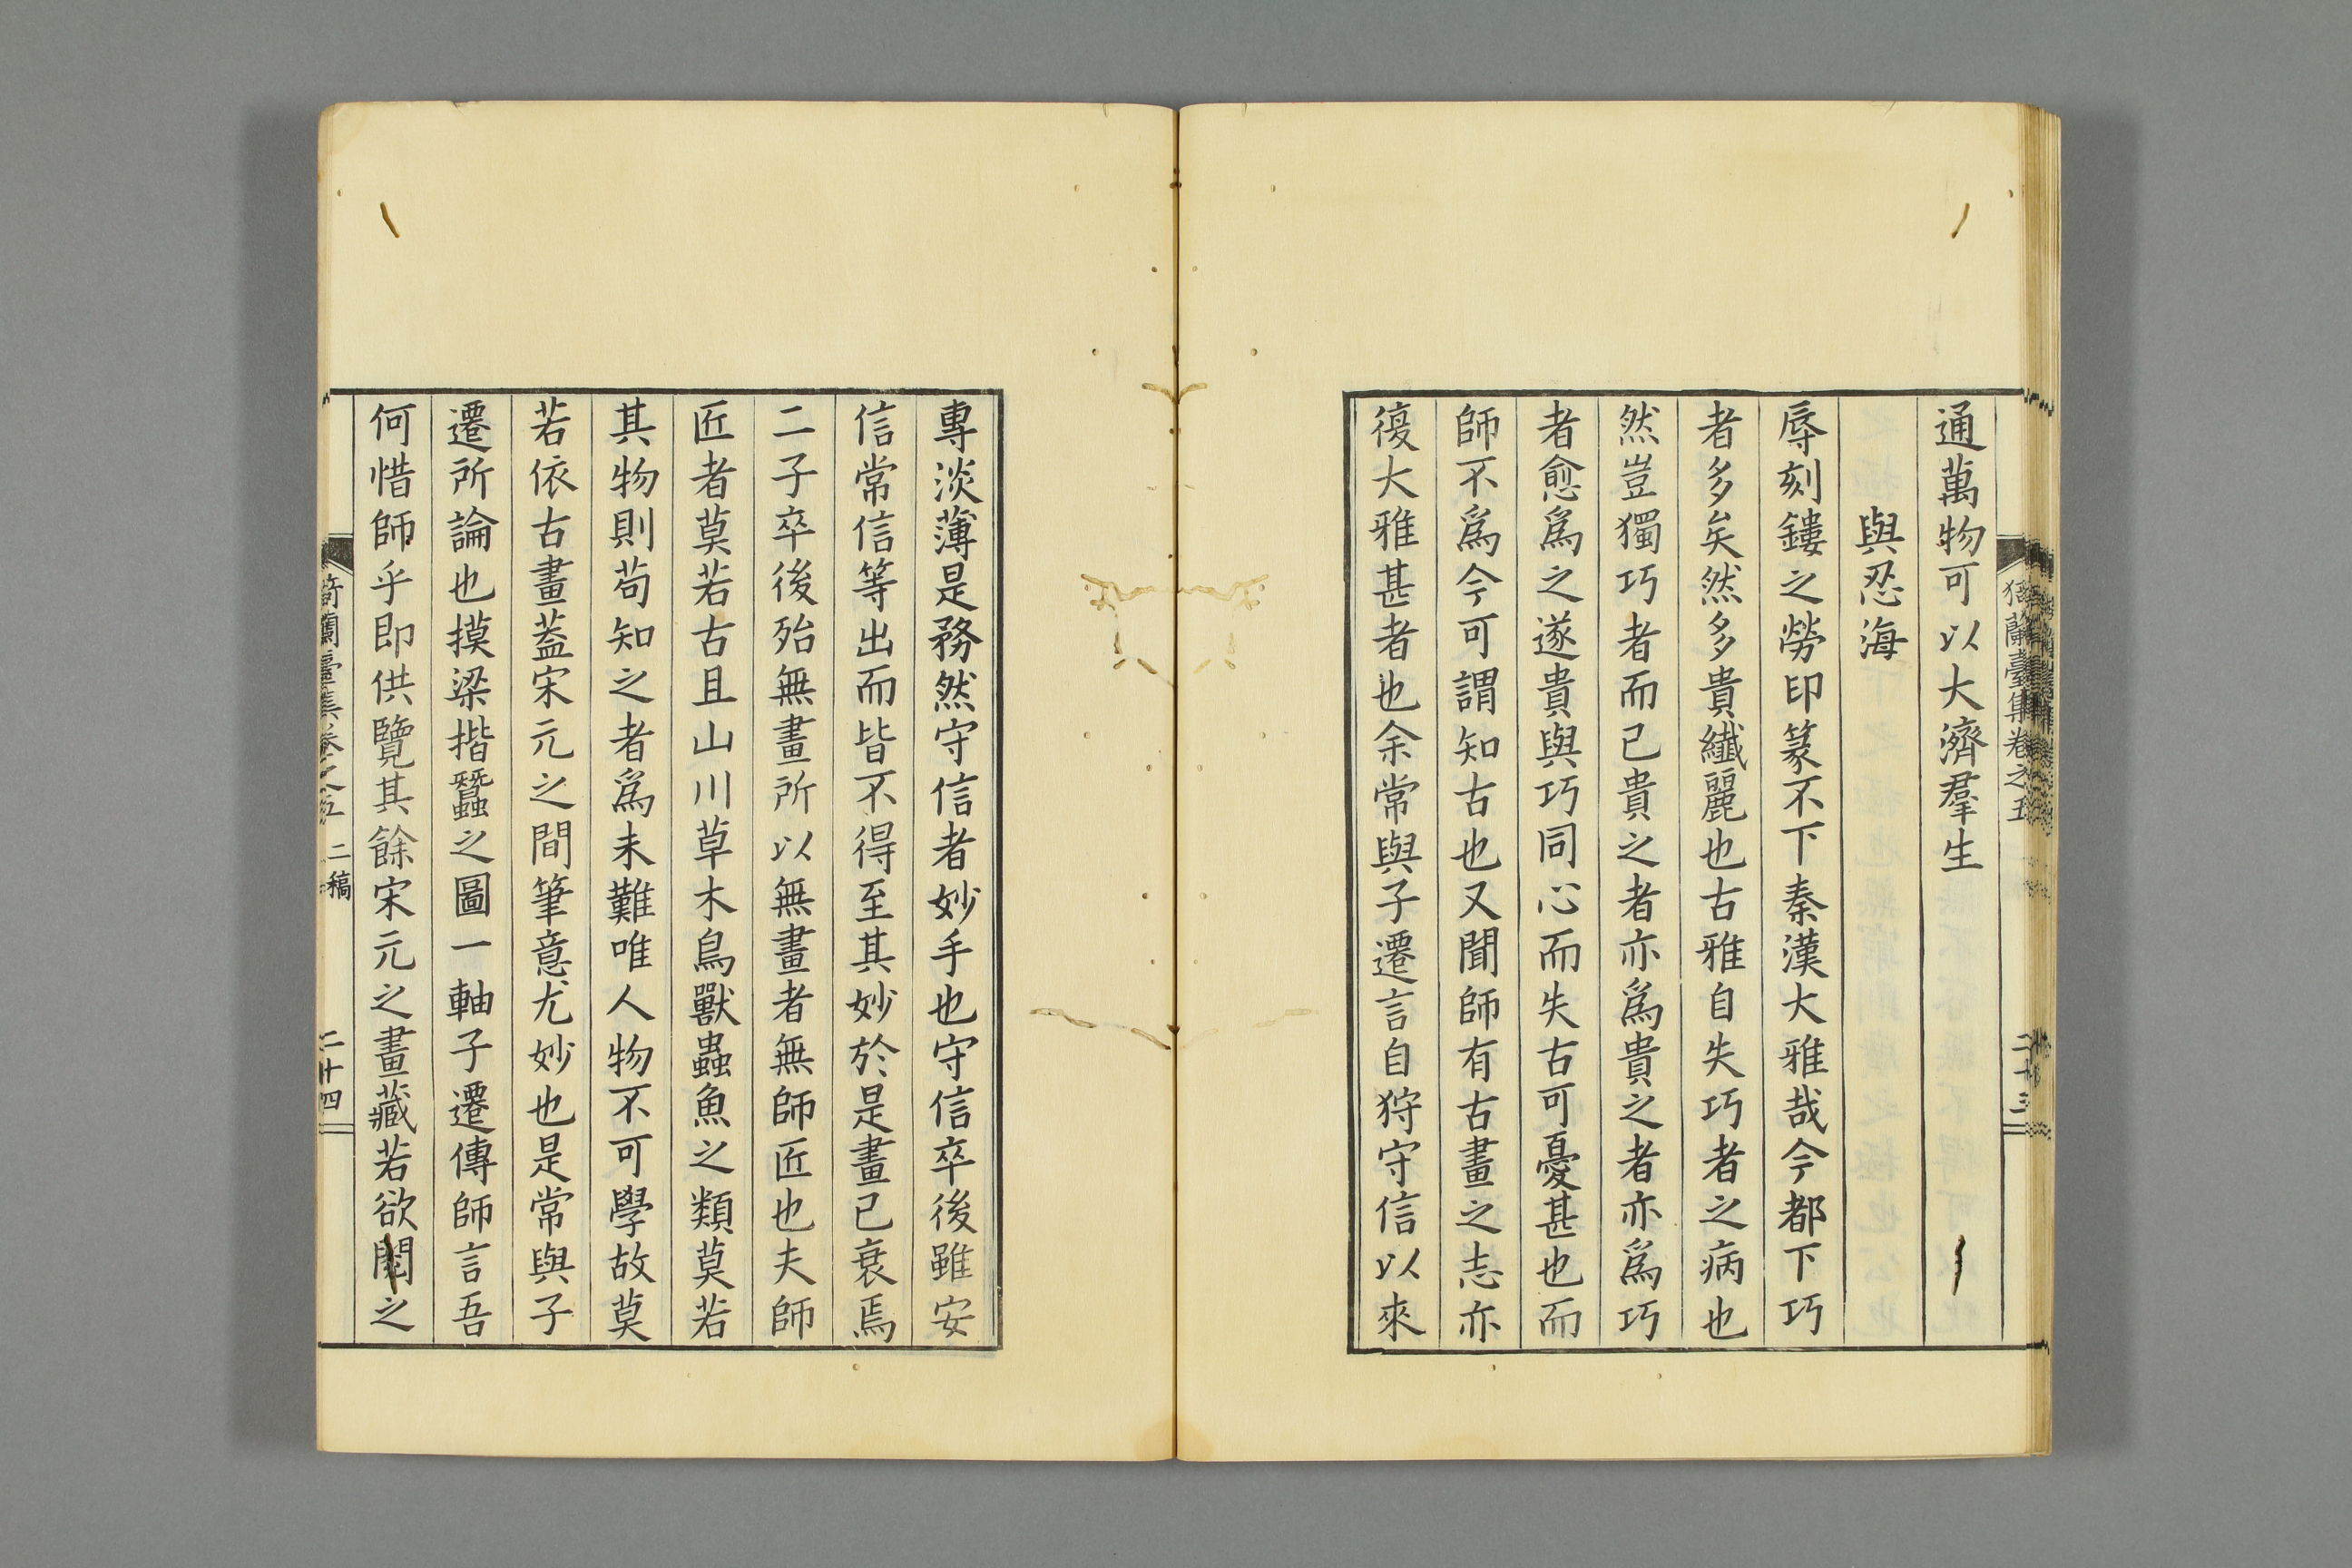 猗蘭臺集卷之五
通萬物可以大濟羣生
與忍海
辱刻鏤之勞印篆不下秦漢大雅哉今都下巧
者多矣然多貴纖麗也古雅自失巧者之病也
然豈獨巧者而已貴之者亦爲貴之者亦爲巧
者愈爲之遂貴與巧同心而失古可憂甚也而
師不爲今可謂知古也又聞師有古畫之志亦
復大雅甚者也余常與子遷言自狩守信以來
專淡薄是務然守信者妙手也守信卒後雖安
信常信等出而皆不得至其妙於是畫已衰焉
二子卒後殆無畫所以無畫者無師匠也夫師
匠者莫若古且山川草木鳥獸蟲魚之類莫若
其物則苟知之者爲未難唯人物不可學故莫
若依古畫蓋宋元之間筆意尤妙也是常與子
遷所論也摸梁揩蠶之圖一軸子遷傳師言吾
何惜師乎即供覽其餘宋元之畫藏若欲閱之
猗蘭臺集卷之五 二稿 二十四